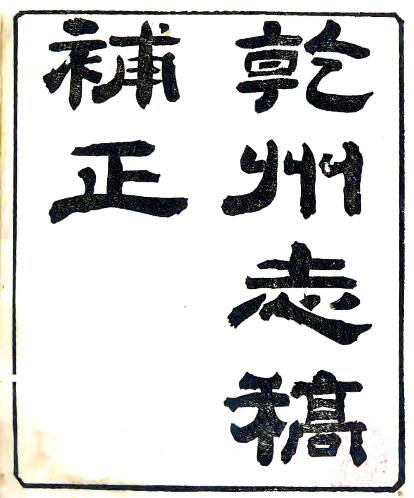 乾州志稿
補正